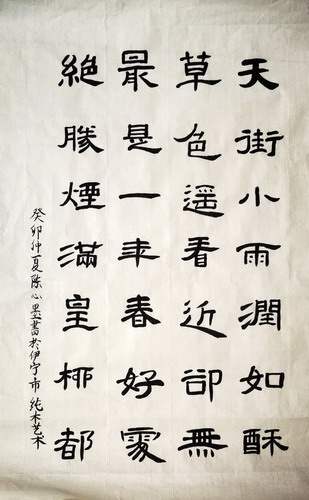 天街小雨潤如酥
草色遥看近卻無
最是一年春好處
絶勝煙滿皇栁都
癸卯仲夏陈心墨書於伊宁市 纯木艺术